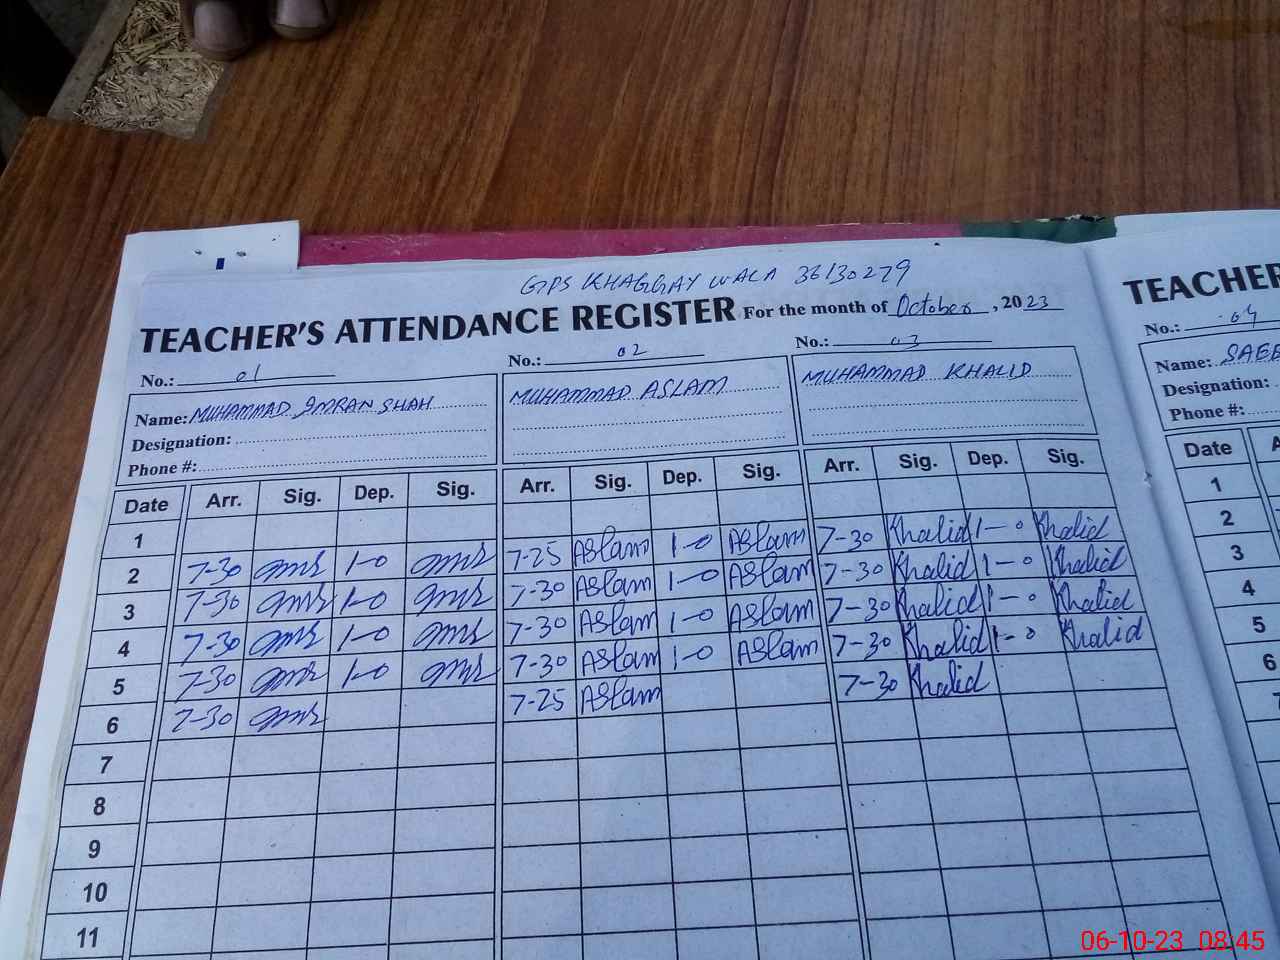 GPS KHAGGAY WALA 36130279
TEACHER'S ATTENDANCE REGISTER For the month of October, 2023
No.: 01 No.: 02 No.: 03
Name: MUHAMMAD IMRAN SHAH MUHAMMAD ASLAM MUHAMMAD KHALID
Designation:
Phone #:
Date Arr. Sig. Dep. Sig. Arr. Sig. Dep. Sig. Arr. Sig. Dep. Sig.
1
2 7-30 1-0 7-25 Aslam 1-0 Aslam 7-30 Khalid 1-0 Khalid
3 7-30 1-0 7-30 Aslam 1-0 Aslam 7-30 Khalid 1-0 Khalid
4 7-30 1-0 7-30 Aslam 1-0 Aslam 7-30 Khalid 1-0 Khalid
5 7-30 1-0 7-30 Aslam 1-0 Aslam 7-30 Khalid 1-0 Khalid
6 7-30 7-25 Aslam 7-30 Khalid
7
8
9
10
11
TEACHER
No.: 04
Name: SAEE
Designation:
Phone #:
Date
1
2
3
4
5
6
06-10-23 08:45